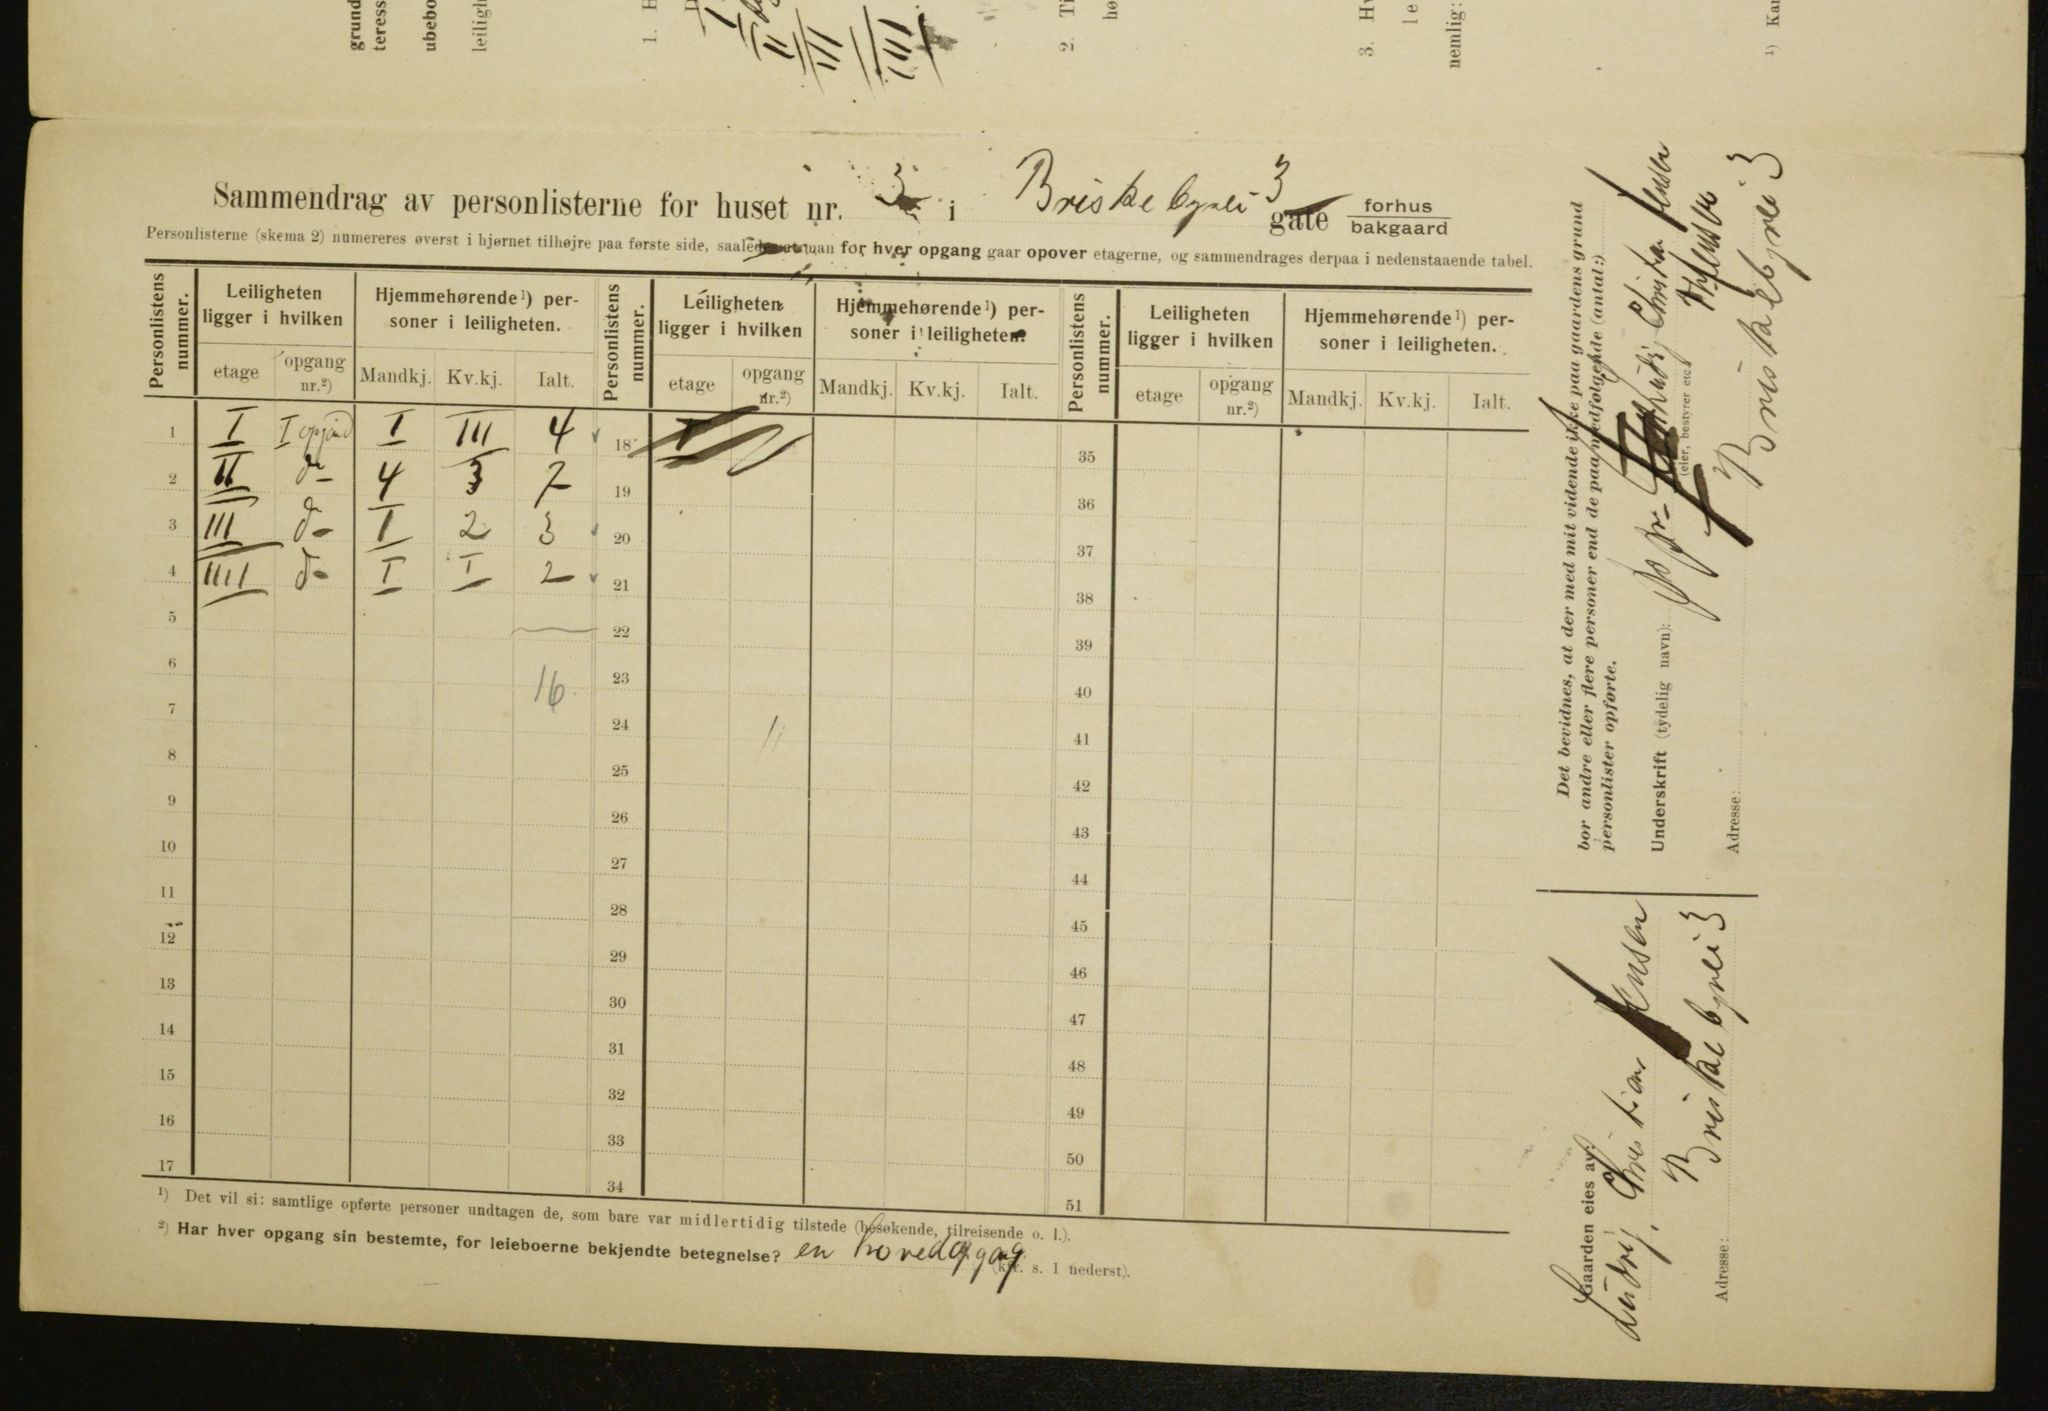 grund
teress
ubebo
leiligh
1. H
I
II
III
IIII
2. Ti
hø
3. Hv
le
nemlig:
¹) Kan
Sammendrag av personlisterne for huset nr. 3 i Briskebyvei 3 gate forhus / bakgaard
Personlisterne (skema 2) numereres øverst i hjørnet tilhøjre paa første side, saaledes at man for hver opgang gaar opover etagerne, og sammendrages derpaa i nedenstaaende tabel.
Personlistens nummer. Leiligheten ligger i hvilken Hjemmehørende¹) personer i leiligheten. Personlistens nummer. Leiligheten ligger i hvilken Hjemmehørende¹) personer i leiligheten. Personlistens nummer. Leiligheten ligger i hvilken Hjemmehørende¹) personer i leiligheten.
etage opgang nr.²) Mandkj. Kv.kj. Ialt. etage opgang nr.²) Mandkj. Kv.kj. Ialt. etage opgang nr.²) Mandkj. Kv.kj. Ialt.
1 I I opgang I III 4 18 35
2 II do 4 3 7 19 36
3 III do I 2 3 20 37
4 IIII do I I 2 21 38
5 22 39
6 16 23 40
7 24 41
8 25 42
9 26 43
10 27 44
11 28 45
12 29 46
13 30 47
14 31 48
15 32 49
16 33 50
17 34 51
¹) Det vil si: samtlige opførte personer undtagen de, som bare var midlertidig tilstede (besøkende, tilreisende o. l.).
²) Har hver opgang sin bestemte, for leieboerne bekjendte betegnelse? en hovedopgang (kfr. s. 1 nederst).
Det bevidnes, at der med mit vidende ikke paa gaardens grund
bor andre eller flere personer end de paa medfølgende (antal:)
personlister opførte.
Underskrift (tydelig navn): Ludvig Christian Jensen
(eier, bestyrer etc.)
Adresse: Briskebyvei 3
Gaarden eies av:
Ludvig, Christian Jensen
Adresse: Briskebyvei 3